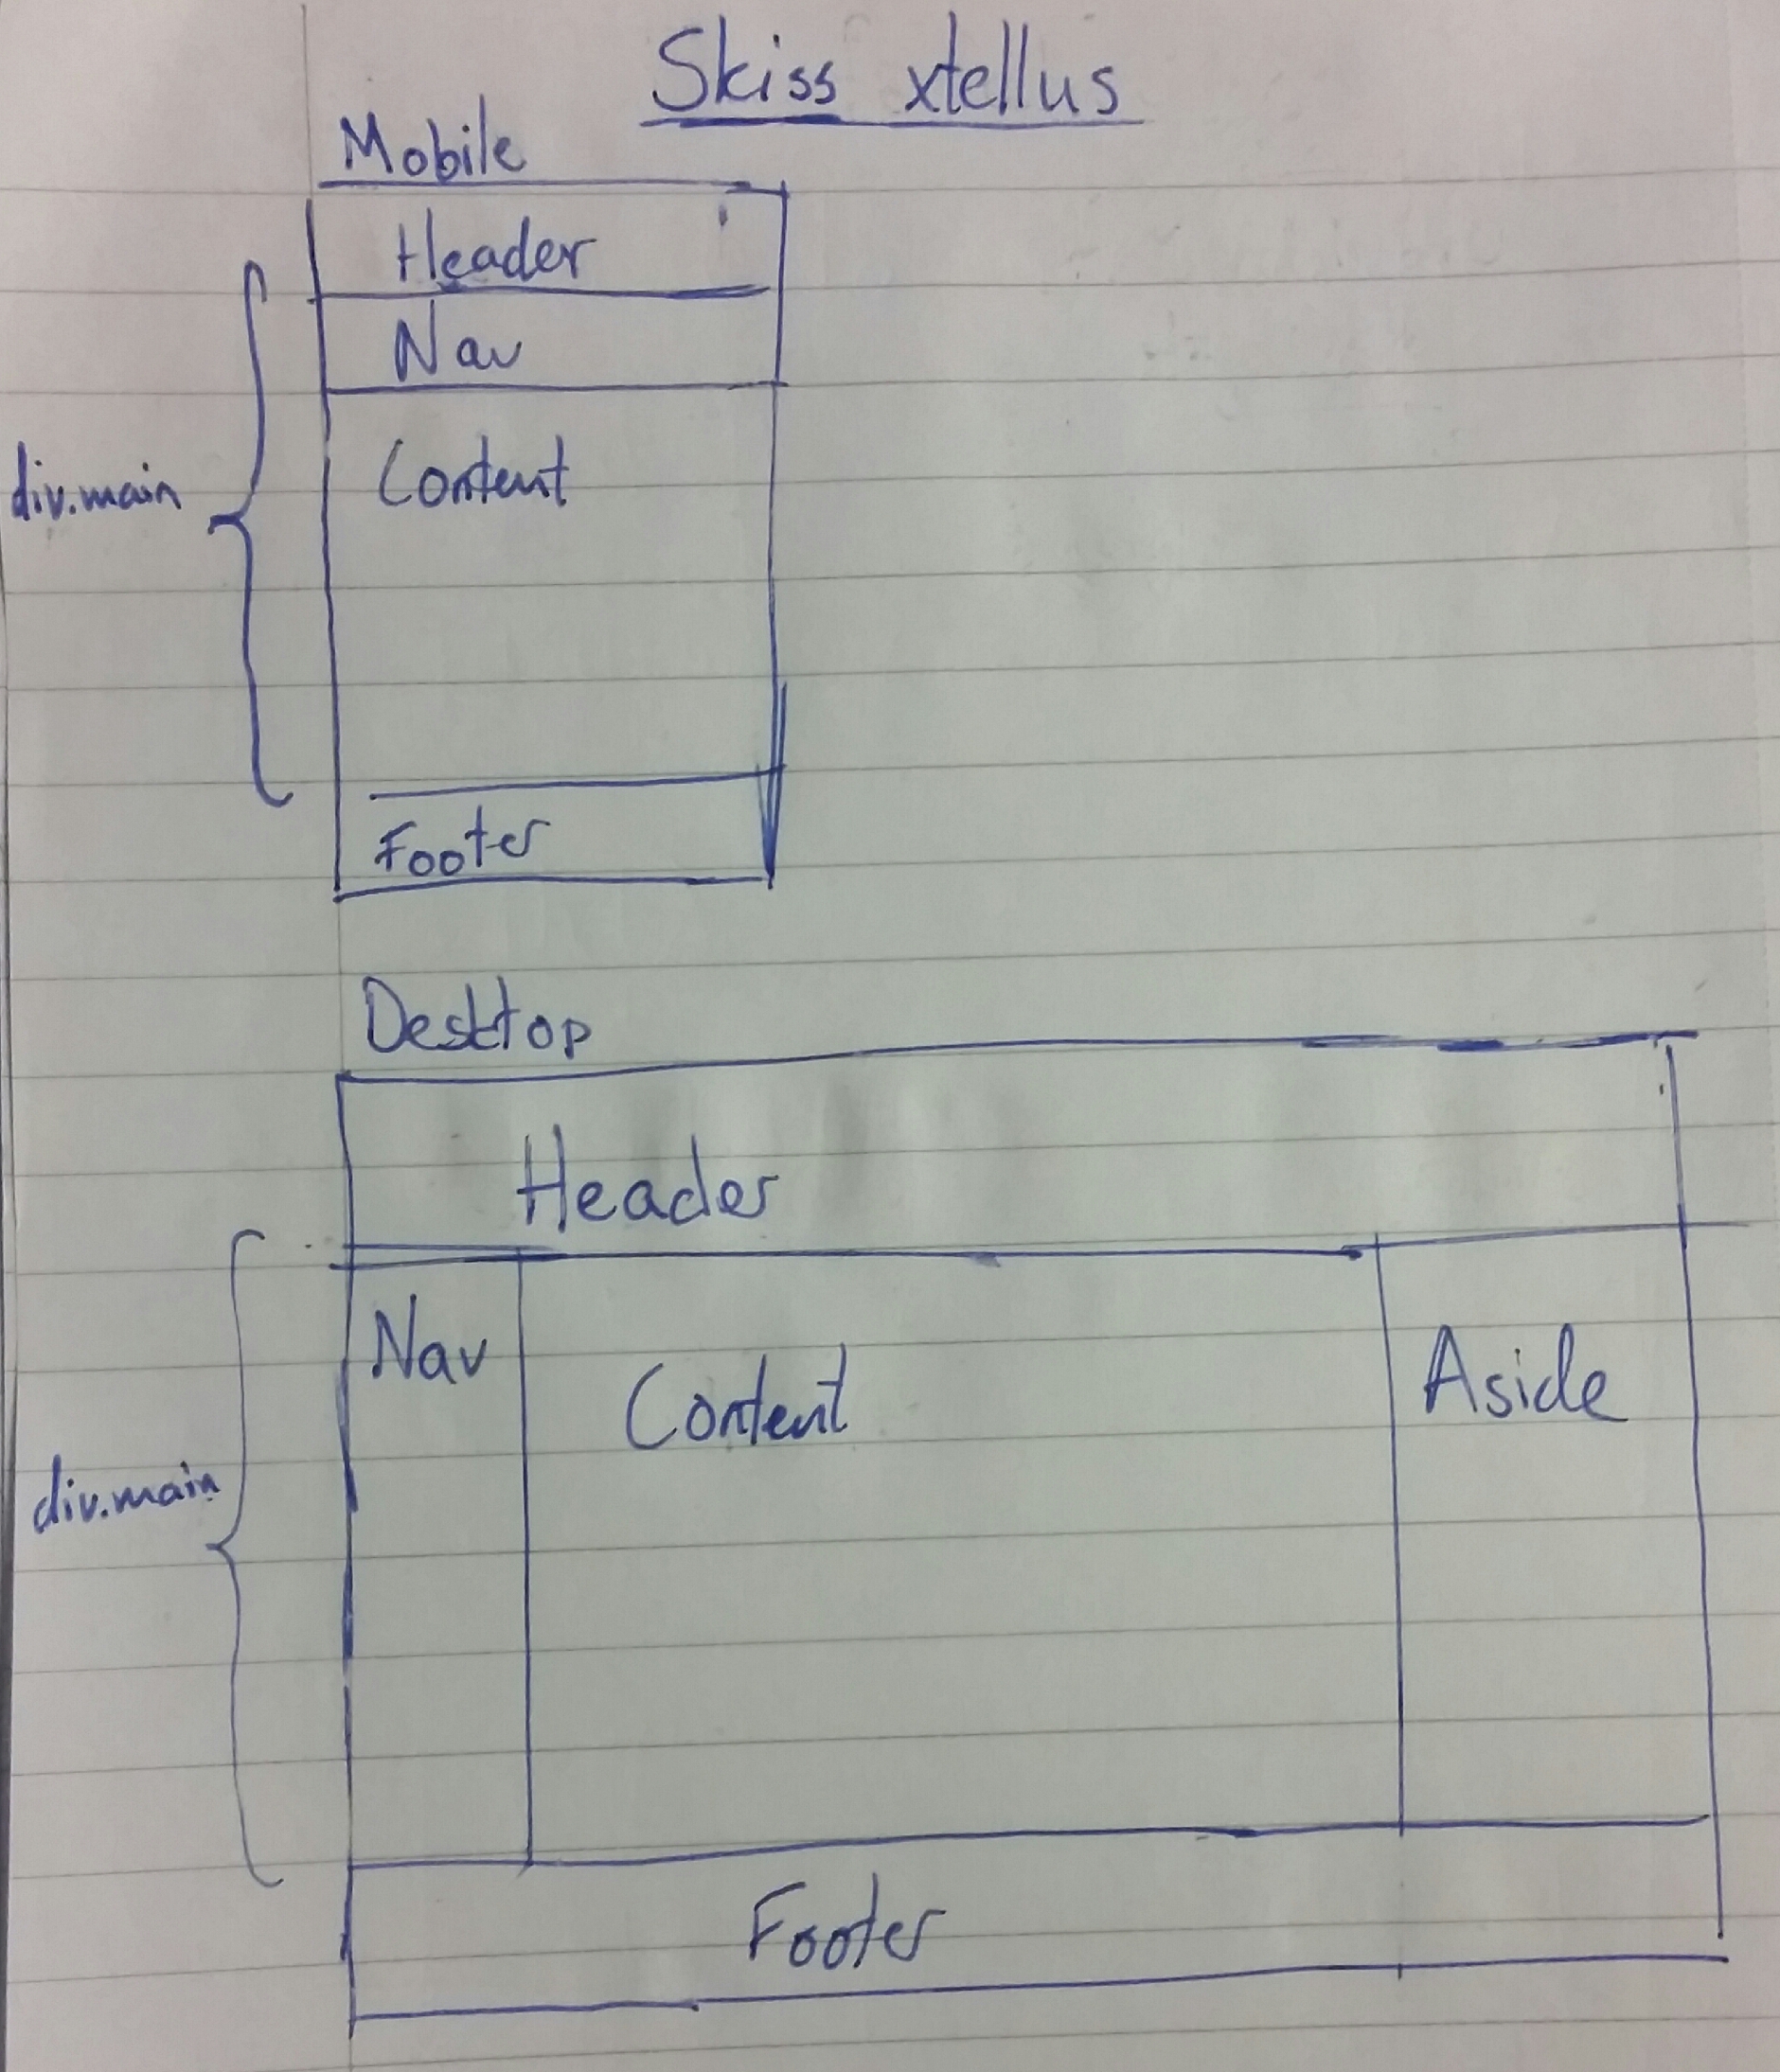 Skiss xtellus
Mobile
Header
Nav
Content
div.main
Footer
Desktop
Header
Nav
Content
Aside
div.main
Footer